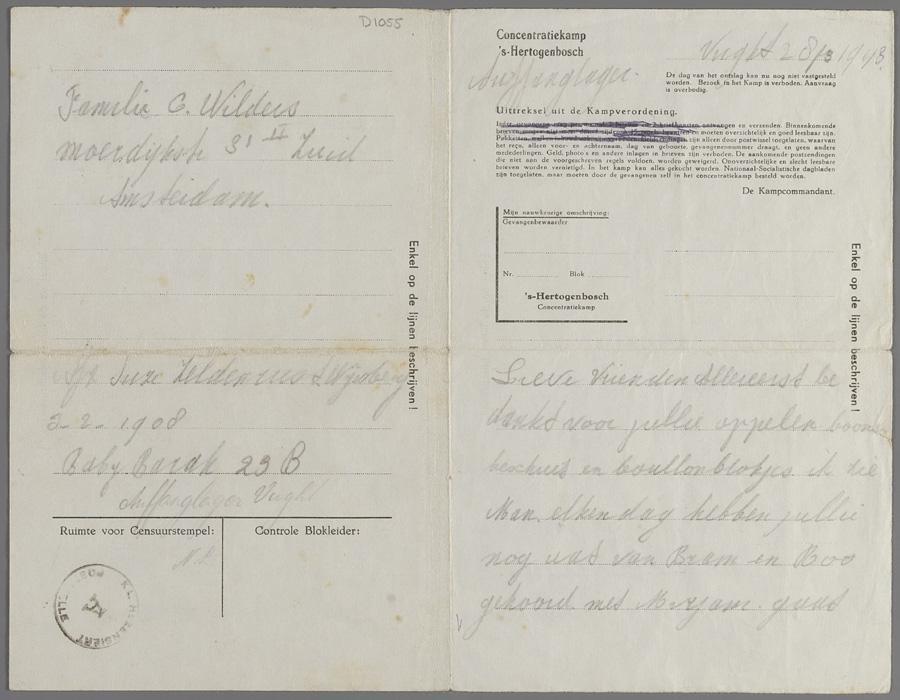 D1055
Familie C. Wilders
Moerdijkstr 31 II Zuid
Amsterdam.
Enkel op de lijnen beschrijven!
Afz Suze
2-2-1908
Baby Barak 23 B
Auffanglager Vught
Ruimte voor Censuurstempel:
Controle Blokleider:
Concentratiekamp
's-Hertogenbosch
Vught 28/3 1943.
Auffanglager.
De dag van het ontslag kan nu nog niet vastgesteld
worden. Bezoek in het Kamp is verboden. Aanvraag
is overbodig.
Uittreksel uit de Kampverordening.
ontvangen en verzenden. Binnenkomende
moeten overzichtelijk en goed leesbaar zijn.
zijn alleen door postwissel toegelaten, waarvan
het reçu, alleen voor- en achternaam, dag van geboorte, gevangenennummer draagt, en geen andere
mededeelingen. Geld, photo's en andere inlagen in brieven zijn verboden. De aankomende postzendingen
die niet aan de voorgeschreven regels voldoen, worden geweigerd. Onoverzichtelijke en slecht leesbare
brieven worden vernietigd. In het kamp kan alles gekocht worden. Nationaal-Socialistische dagbladen
zijn toegelaten, maar moeten door de gevangenen self in het concentratiekamp besteld worden.
De Kampcommandant.
Mijn nauwkeurige omschrijving:
Gevangenbewaarder
Nr. Blok
's-Hertogenbosch
Concentratiekamp
Enkel op de lijnen beschrijven!
Lieve Vrienden Allereerst be
dankt voor jullie appelen boonen
beschuit en boullonblokjes. ik zie
Man. elken dag hebben jullie
nog wat van Bram en Roo
gehoord met Mirjam. gaat